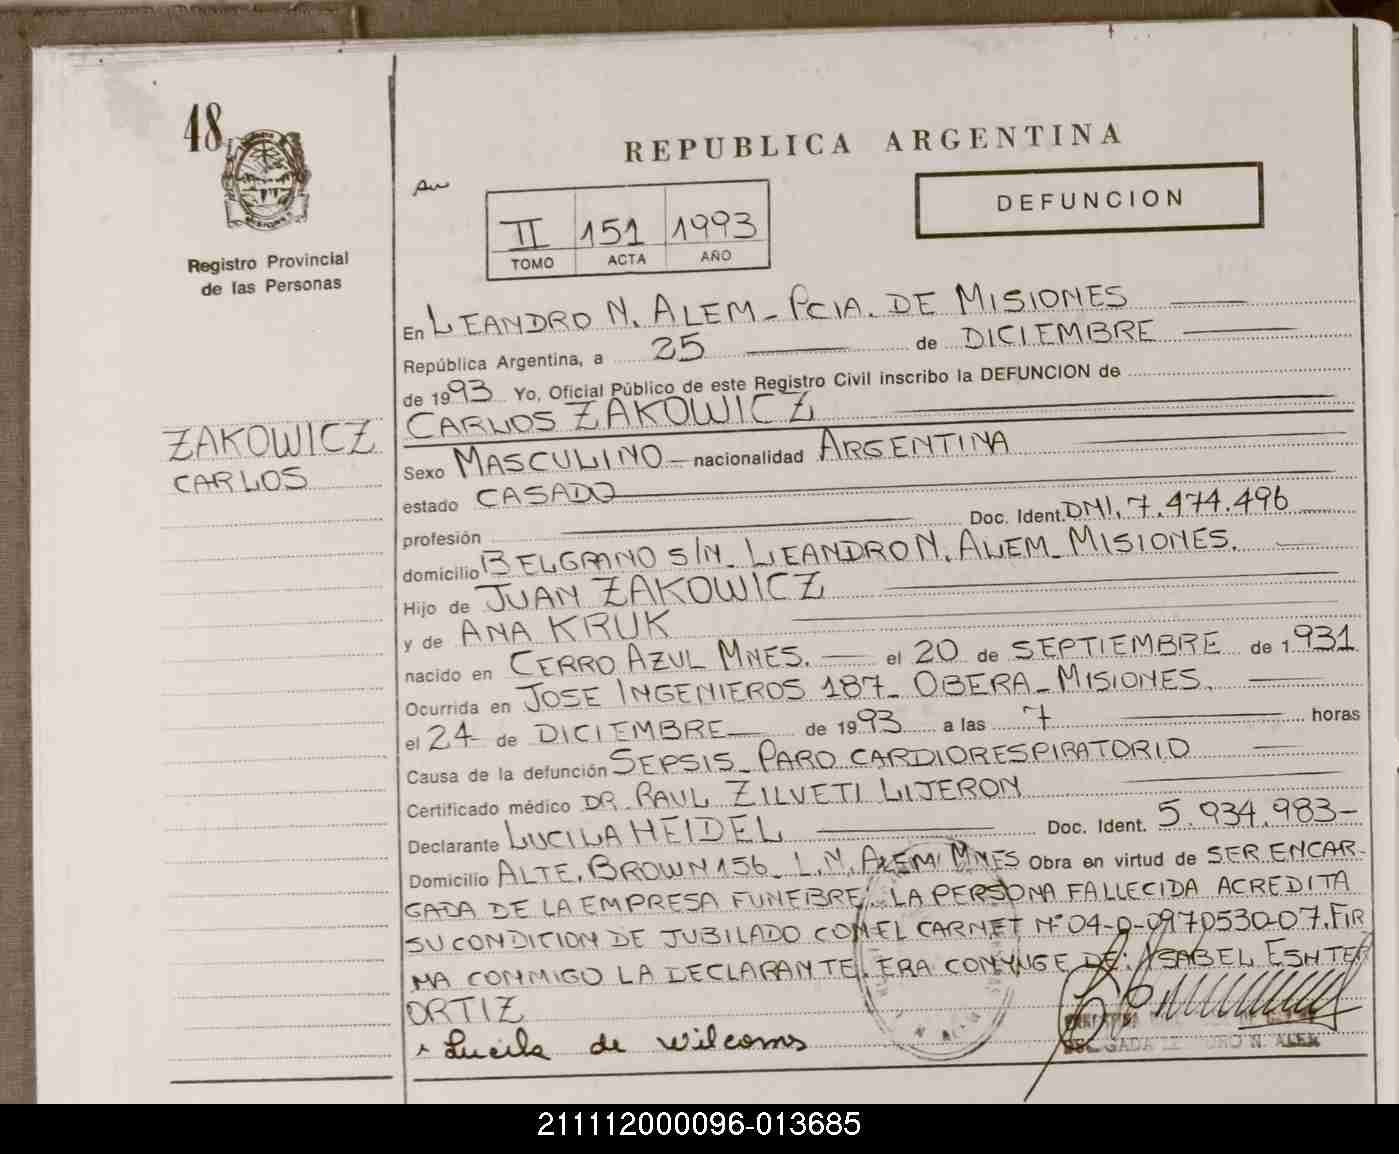 48
Registro Provincial
de las Personas
REPUBLICA ARGENTINA
DEFUNCION
II 151 1993
TOMO ACTA AÑO
En LEANDRO N. ALEM - PCIA. DE MISIONES
República Argentina, a 25 de DICIEMBRE
de 1993 Yo, Oficial Público de este Registro Civil inscribo la DEFUNCION de
CARLOS ZAKOWICZ
ZAKOWICZ
CARLOS
Sexo MASCULINO - nacionalidad ARGENTINA
estado CASADO
profesión Doc. Ident. DNI. 7.474.496
domicilio BELGRANO S/N. LEANDRO N. ALEM - MISIONES.
Hijo de JUAN ZAKOWICZ
y de ANA KRUK
nacido en CERRO AZUL MNES. el 20 de SEPTIEMBRE de 1.931
Ocurrida en JOSE INGENIEROS 187 - OBERA - MISIONES.
el 24 de DICIEMBRE de 1993 a las 7 horas
Causa de la defunción SEPSIS - PARO CARDIORESPIRATORIO
Certificado médico DR. RAUL ZILVETI LIJERON
Declarante LUCILA HEIDEL Doc. Ident. 5.934.983-
Domicilio ALTE. BROWN 156 - L.N. ALEM MNES Obra en virtud de SER ENCAR-
GADA DE LA EMPRESA FUNEBRE. LA PERSONA FALLECIDA ACREDITA
SU CONDICION DE JUBILADO CON EL CARNET Nº 04-0-0970530-07. FIR
MA CONMIGO LA DECLARANTE. ERA CONYUGE DE: ISABEL ESHTER
ORTIZ
Lucila de Wilcoms
211112000096-013685